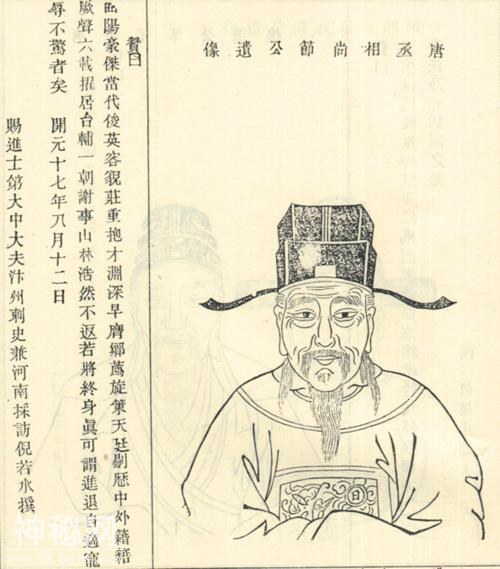 唐丞相尚節公遺像
賛曰
陽豪傑當代俊英容貌莊重抱才淵深早膺鄉薦旋策天廷剔歷中外籍籍
厥聲六載擢居台輔一朝謝事山林浩然不返若將終身眞可謂進退自適寵
辱不驚者矣 開元十七年八月十二日
賜進士第大中大夫汴州刺史兼河南採訪倪若水撰
日
神秘网